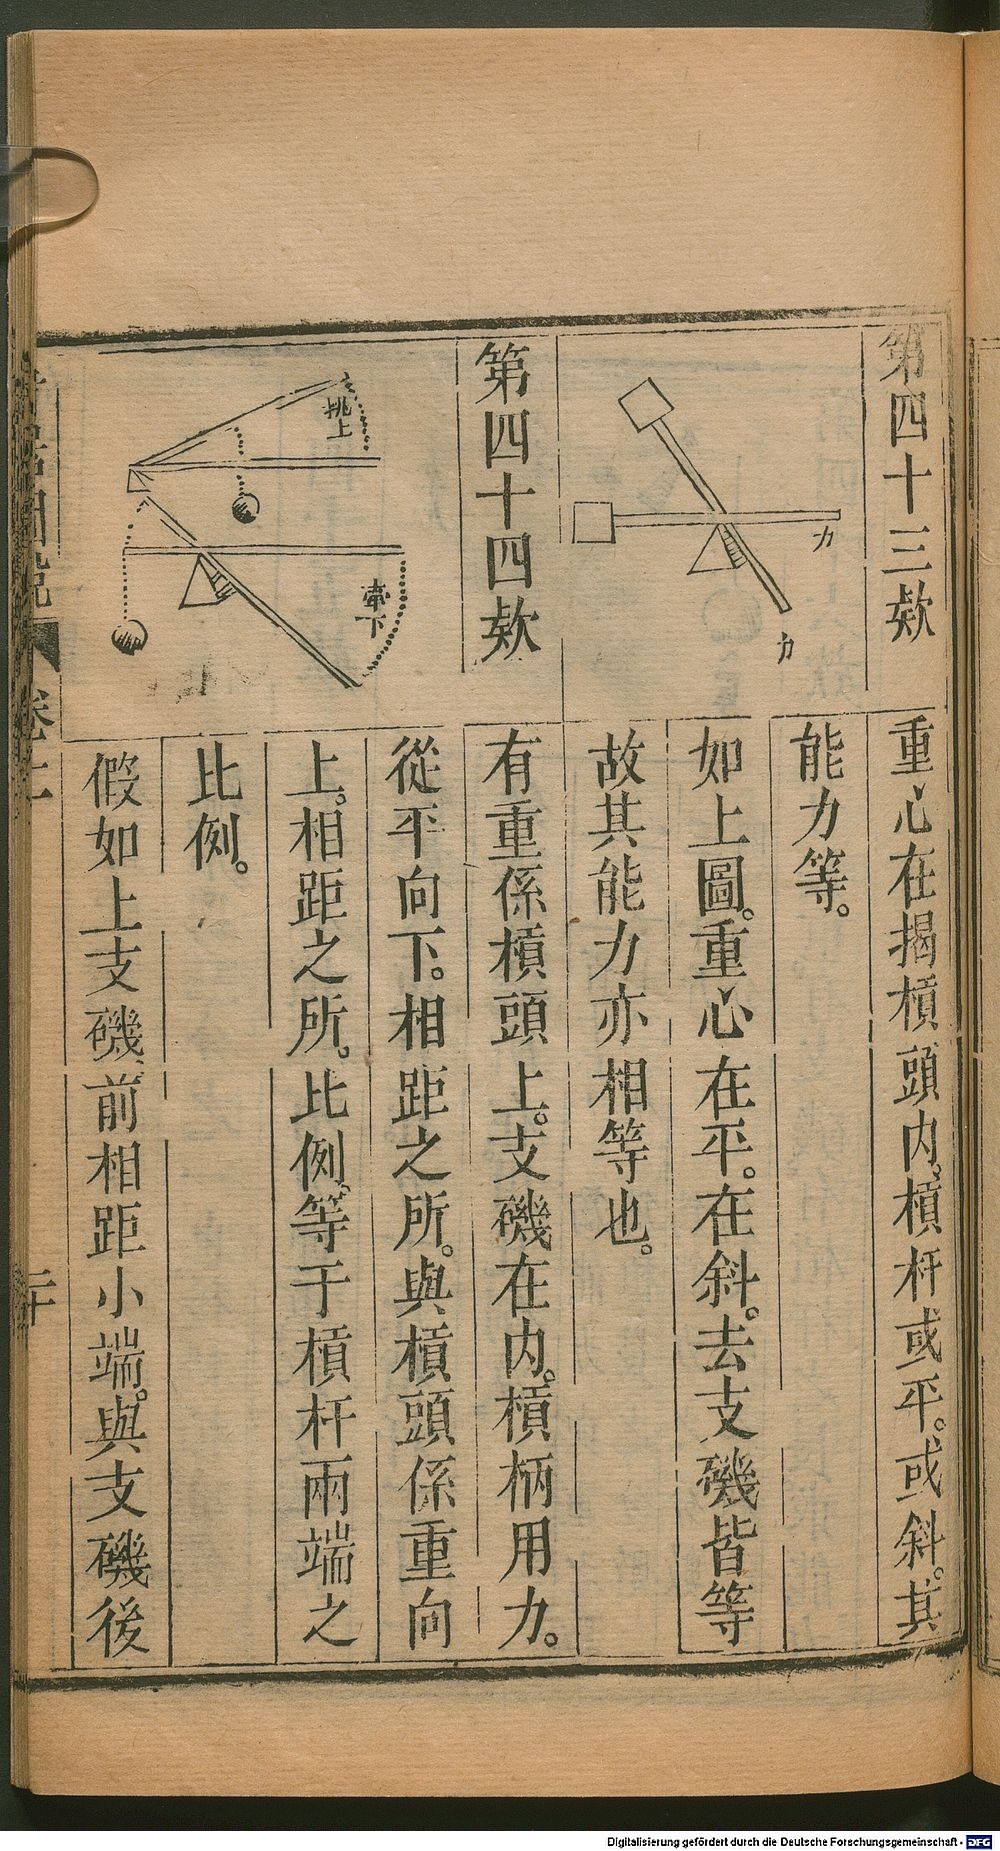 第四十三欵
力
力
重心在揭槓頭内、槓杆或平。或斜。其
能力等。
如上圖。重心在平。在斜。去支磯皆等
故其能力亦相等也。
第四十四欵
挑上
牽下
有重係槓頭上。支磯在内。槓柄用力。
從平向下。相距之所。與槓頭係重向
上。相距之所。比例。等于槓杆兩端之
比例。
假如上支磯、前相距小端。與支磯後
卷二
二十
Digitalisierung gefördert durch die Deutsche Forschungsgemeinschaft - DFG